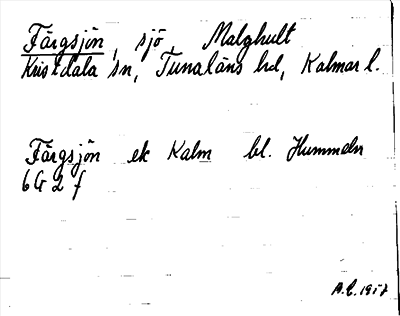 Färgsjön, sjö, Malghult
Kristdala sn, Tunaläns hd, Kalmar l.
Färgsjön ek Kalm bl. Hummeln
6 G 2 f
A.C. 1957